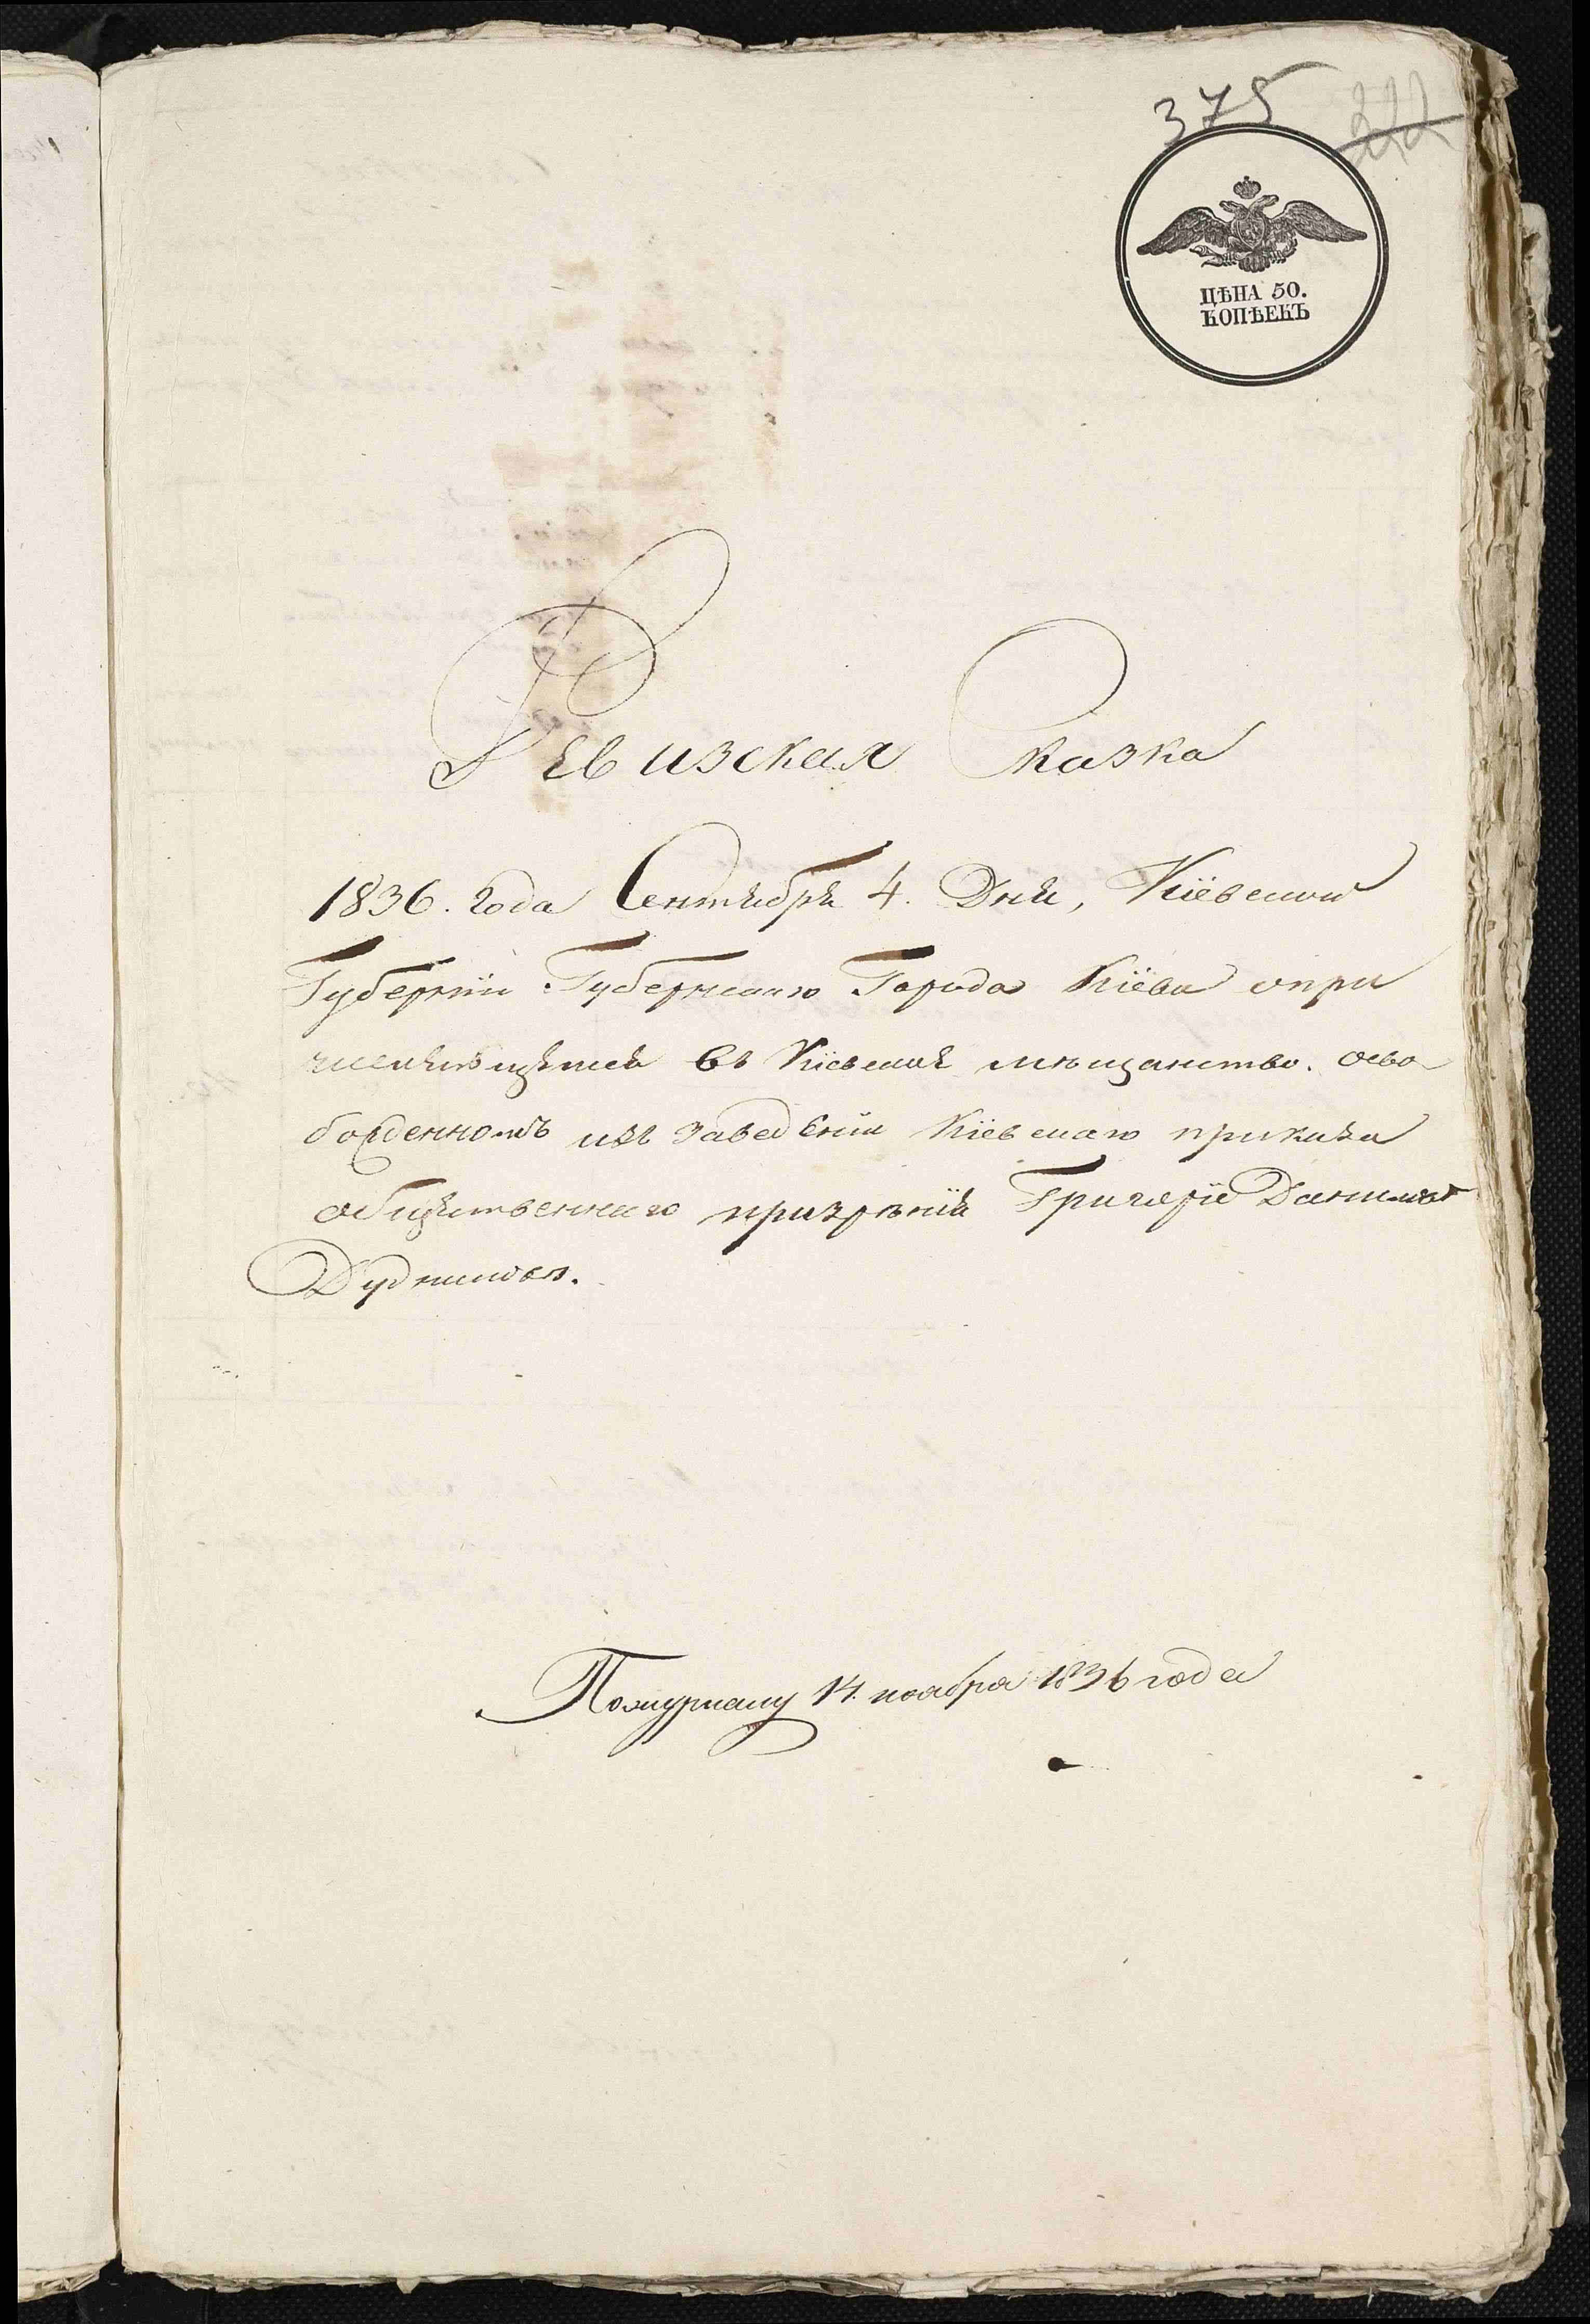 375
222
ЦѢНА 50.
КОПѢЕКЪ
Ревизская Сказка
1836. Года Сентября 4. Дня, Кіевской
Губерніи Губернскаго Города Кіева опри
числяющемся въ Кіевское мѣщанство. осво
божденномъ изъ Заведенія Кіевскаго приказа
общественнаго призрѣнія Григоріе Данилов
Дудникова.
14 ноября 1836 года